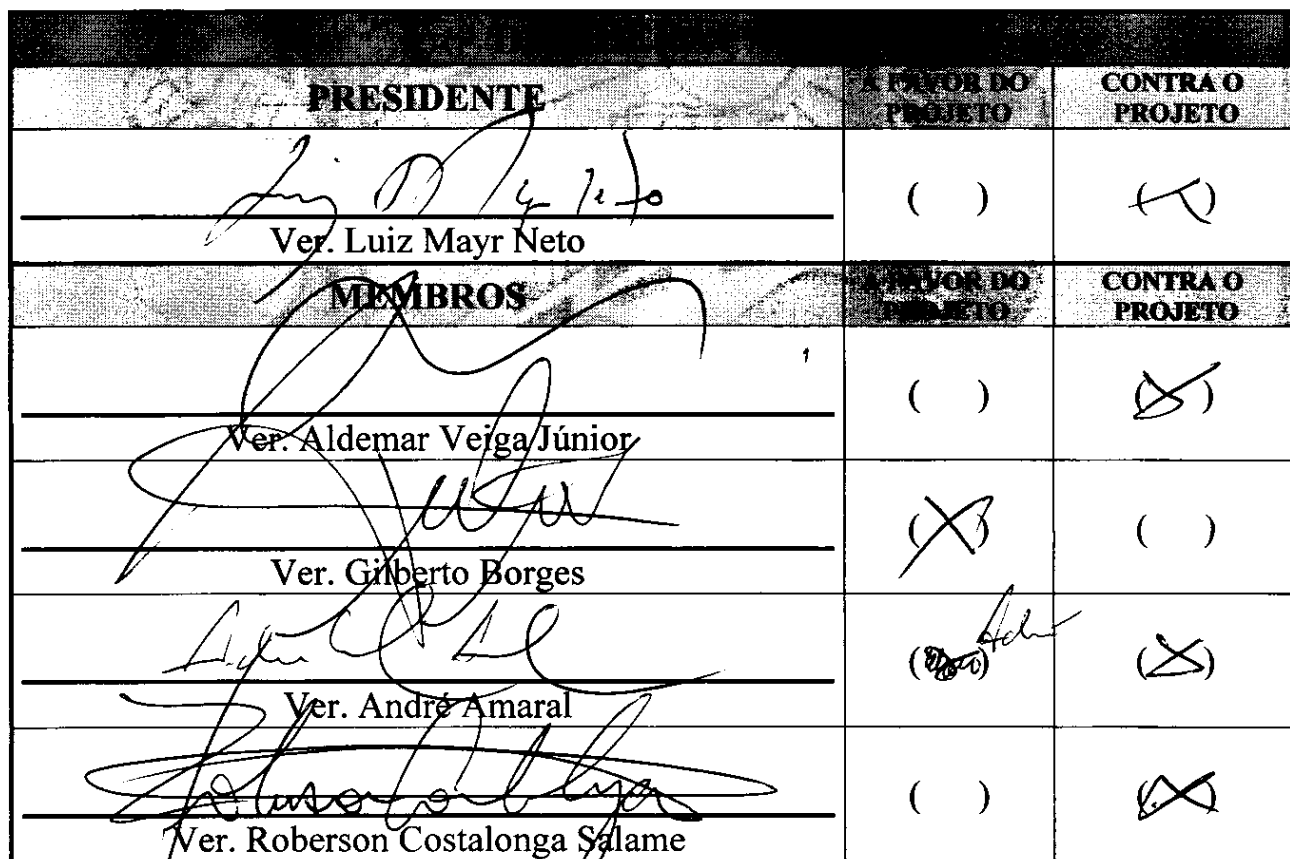 PRESIDENTE A FAVOR DO PROJETO CONTRA O PROJETO
Luiz Mayr Neto ( ) (X)
Ver. Luiz Mayr Neto
MEMBROS A FAVOR DO PROJETO CONTRA O PROJETO
( ) (X)
Ver. Aldemar Veiga Júnior
(X) ( )
Ver. Gilberto Borges
( ) (X)
Ver. André Amaral
( ) (X)
Ver. Roberson Costalonga Salame